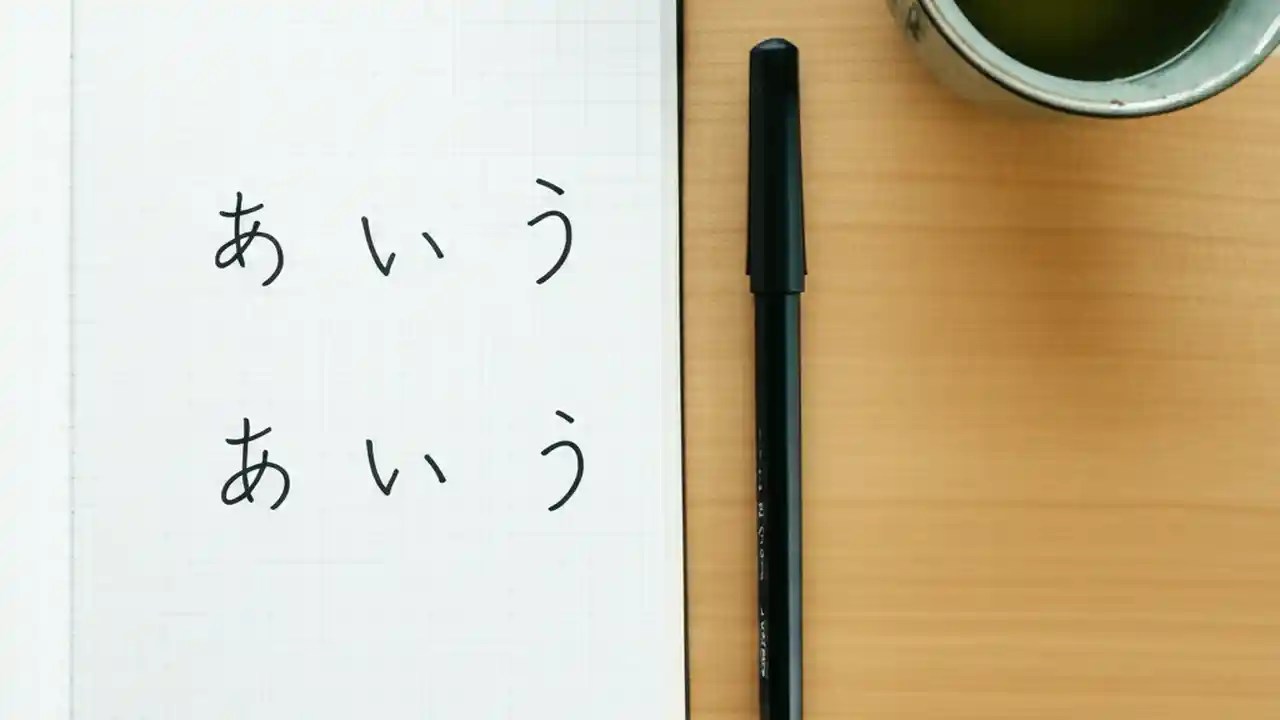 あ い う
あ い う